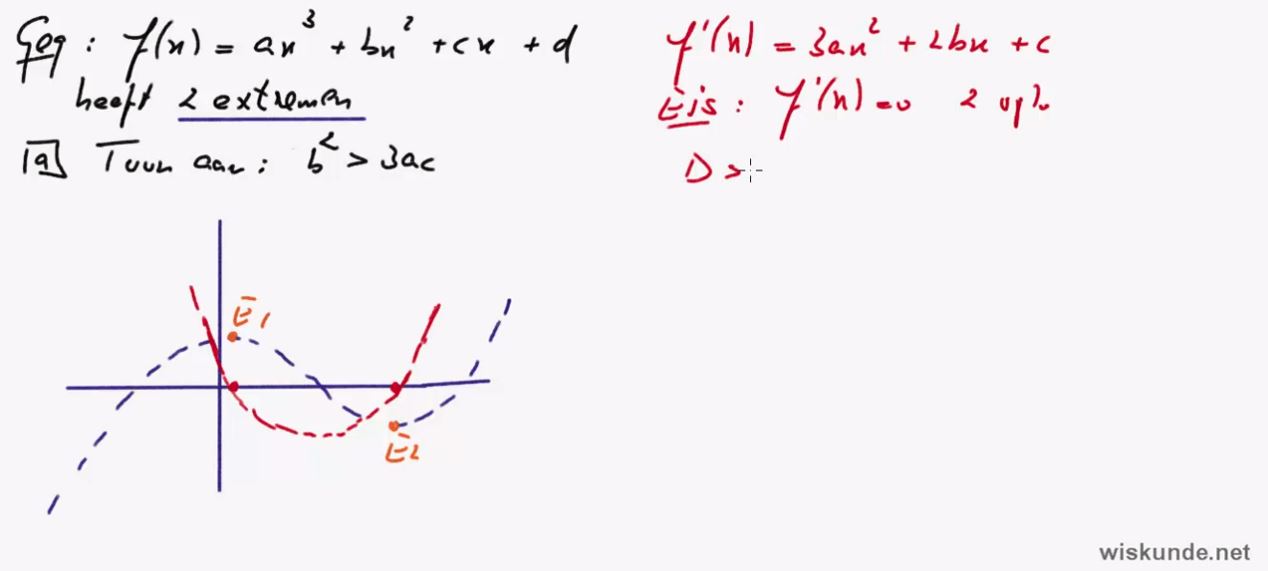 Geg : f(x) = ax³ + bx² + cx + d
heeft 2 extremen
[a] Toon aan : b² > 3ac
f'(x) = 3ax² + 2bx + c
Eis : f'(x) = 0 2 opl.
D >
E1
E2
wiskunde.net